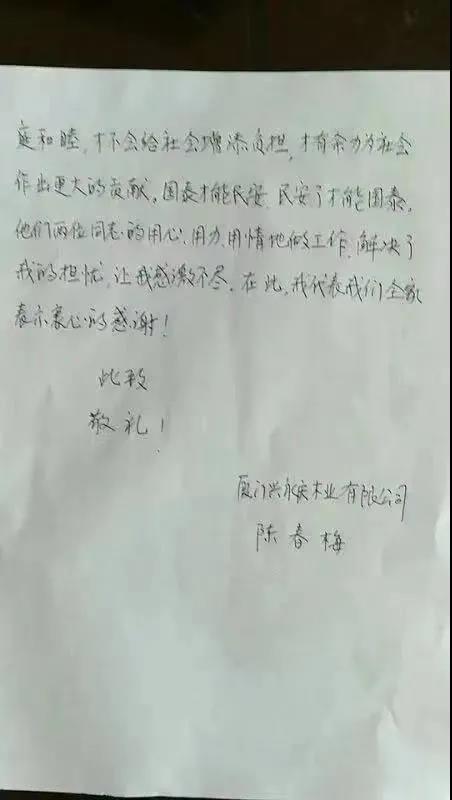 庭和睦,才不会给社会增添负担,才有余力为社会
作出更大的贡献。国泰才能民安,民安了才能国泰。
他们两位同志的用心、用力、用情地做工作,解决了
我的担忧,让我感激不尽。在此,我代表我们全家
表示衷心的感谢!
此致
敬礼!
厦门兴永庆木业有限公司
陈春梅